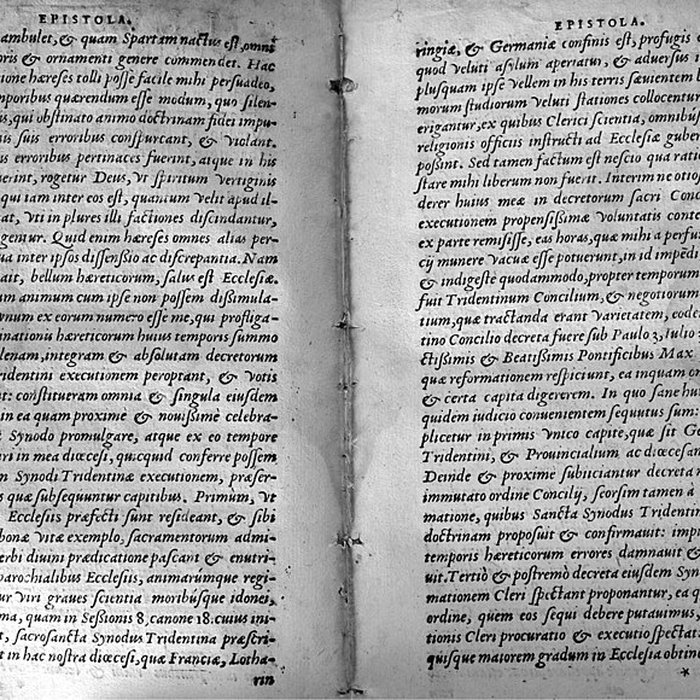 EPISTOLA.
ambulet, & quam Spartam nactus est, omni
ris & ornamenti genere commendet. Hac
ione hæreses tolli posse facile mihi persuadeo,
mporibus quærendum esse modum, quo silen-
is, qui obstinato animo doctrinam fidei impu-
nis suis erroribus conspurcant, & violant.
is erroribus pertinaces fuerint, atque in his
erint, rogetur Deus, vt spiritum vertiginis
qui iam inter eos est, quantum velit apud il-
at, vti in plures illi factiones discindantur,
gentur. Quid enim hæreses omnes alias per-
ua inter ipsos dissensio ac discrepantia. Nam
ait, bellum hæreticorum, salus est Ecclesiæ.
m animum cum ipse non possem dissimula-
vnum ex eorum numero esse me, qui profliga-
minationũ hæreticorum huius temporis summo
lenam, integram & absolutam decretorum
ridentini executionem peroptant, & votis
t: constitueram omnia & singula eiusdem
in ea quam proximè & nouissimè celebra-
Synodo promulgare, atque ex eo tempore
ri in mea diœcesi, quicquid conferre possem
m Synodi Tridentinæ executionem, præser-
s quæ subsequuntur capitibus. Primùm, vt
Ecclesiis præfecti sunt resideant, & sibi
bonæ vitæ exemplo, sacramentorum admi-
erbi diuini prædicatione pascant & enutri-
parochialibus Ecclesiis, animarumque regi-
ur viri graues scientia moribúsque idonei,
ma, quam in Sessionis 8. canone 18. cuius ini-
t, sacrosancta Synodus Tridentina præscri-
t in hac nostra diœcesi, quæ Franciæ, Lotha-
rin
EPISTOLA.
ringiæ, & Germaniæ confinis est, profugis e
quod veluti asylum aperiatur, & aduersus i
plusquam ipse vellem in his terris sæuientem
morum studiorum veluti stationes collocentur
erigantur, ex quibus Clerici scientia, omnibus
religionis officiis instructi ad Ecclesiæ guber
possint. Sed tamen factum est nescio qua rati
stare mihi liberum non fuerit. Interim ne otios
derer huius meæ in decretorum sacri Conc
executionem propensissimæ voluntatis cont
ex parte remisisse, eas horas, quæ mihi a perfu
cij munere vacuæ esse potuerunt, in id impẽdi
& indigestè quodammodo, propter temporum
fuit Tridentinum Concilium, & negotiorum
tium, quæ tractanda erant varietatem, eode
tino Concilio decreta fuere sub Paulo 3, Iulio 3
ctissimis & Beatissimis Pontificibus Max
quæ reformationem respiciunt, ea inquam or
& certa capita digererem. In quo sanè hu
quidem iudicio conuenientem sequutus sum:
plicetur in primis vnico capite, quæ sit Ge
Tridentini, & Prouincialium ac diœcesan
Deinde & proximè subiiciantur decreta
immutato ordine Concilij, seorsim tamen à
matione, quibus Sancta Synodus Tridentin
doctrinam proposuit & confirmauit: imp
temporis hæreticorum errores damnauit &
uit. Tertiò & postremò decreta eiusdem Syn
mationem Cleri spectant proponantur, ea q
ordine, quem eos sequi debere putauimus,
tionis Cleri procuratio & executio spectat
quisque maiorem gradum in Ecclesia obtine
*